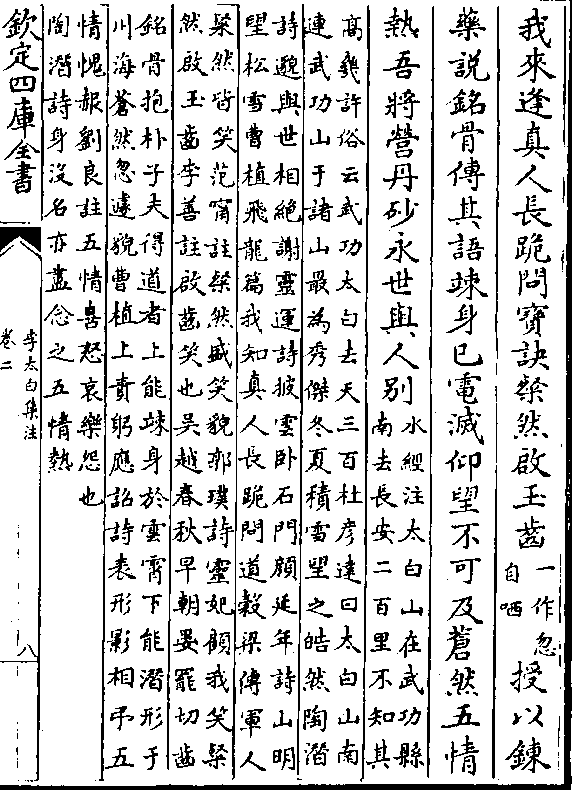 我來逢真人長跪問寶訣粲然啟玉齒一作忽自哂授以鍊
藥說銘骨傳其語竦身已電滅仰望不可及蒼然五情
熱吾將營丹砂永世與人別水經注太白山在武功縣
南去長安二百里不知其
高幾許俗云武功太白去天三百杜彦達曰太白山南
連武功山于諸山最為秀傑冬夏積雪望之皓然陶潛
詩邈與世相絶謝靈運詩披雲卧石門顔延年詩山明
望松雪曹植飛龍篇我知真人長跪問道榖梁傳軍人
粲然皆笑范甯註粲然盛笑貌郭璞詩靈妃顧我笑粲
然啟玉齒李善註啟齒笑也吴越春秋早朝晏罷切齒
銘骨抱朴子夫得道者上能竦身於雲霄下能潛形于
川海蒼然忽遽貌曹植上責躬應詔詩表形影相弔五
情愧赧劉良註五情喜怒哀樂怨也
陶潛詩身沒名亦盡念之五情熱
欽定四庫全書
李太白集注
卷二
八